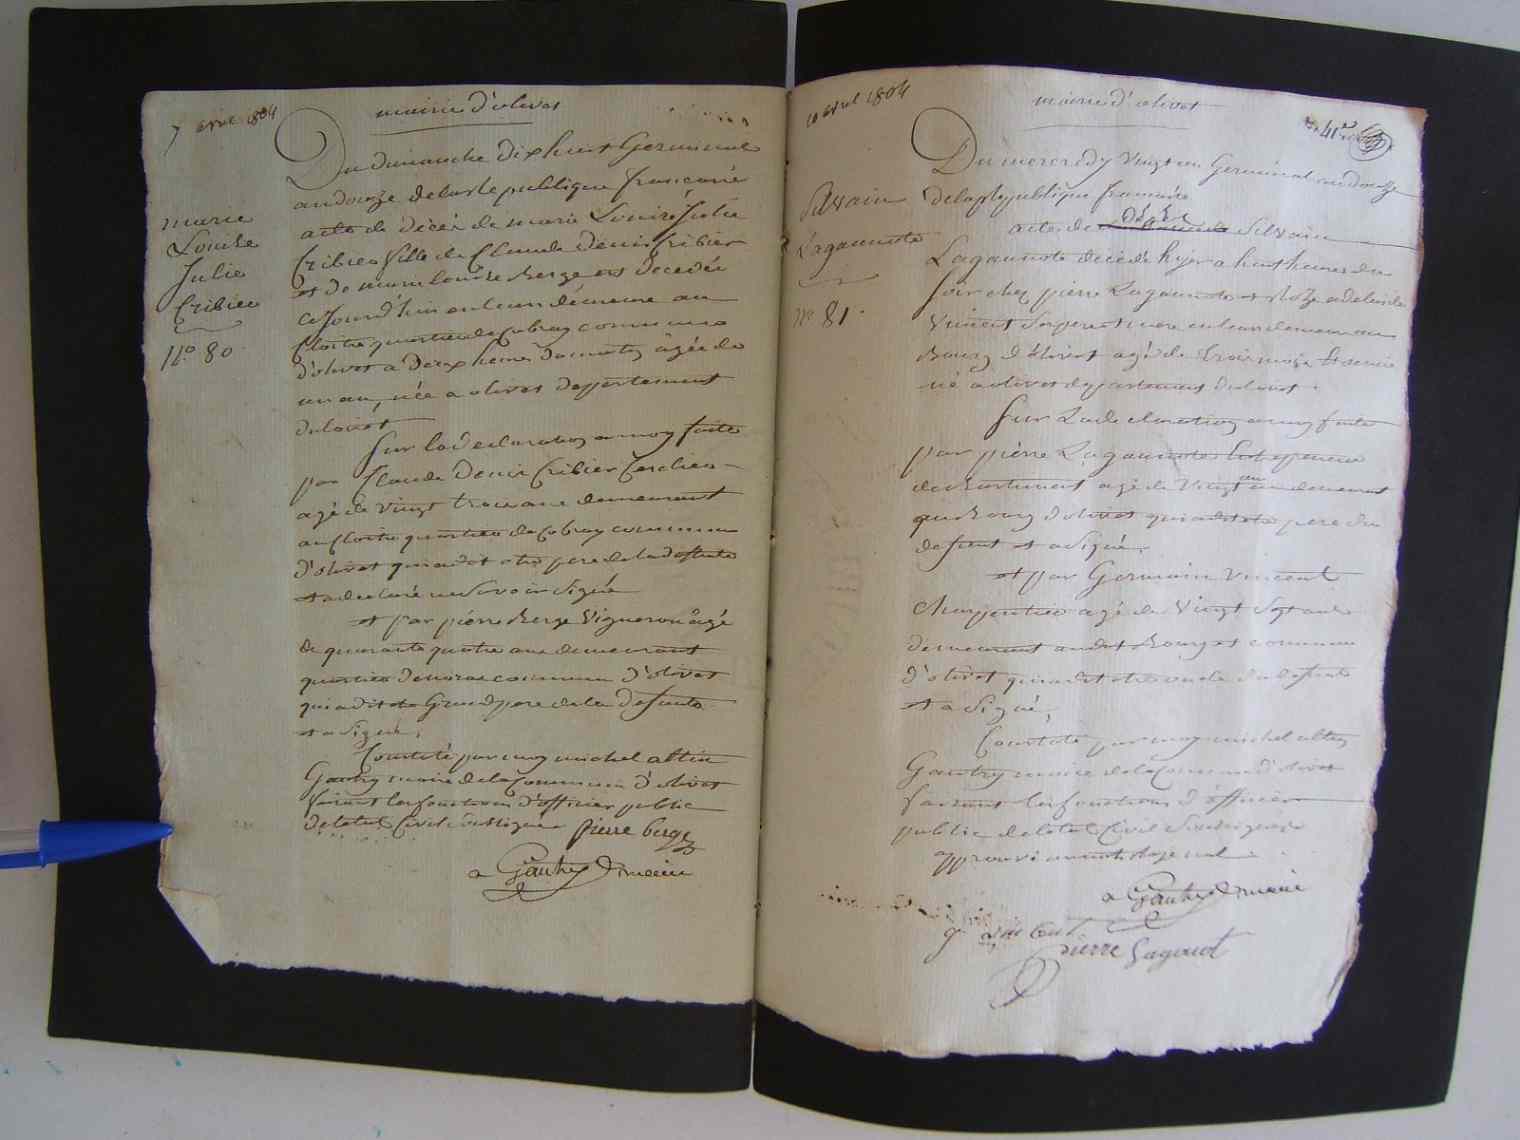 7 avril 1804
mairie d'olivet
marie
Louise
Julie
Cribier
N° 80
Du dimanche dixhuit Germinal
an douze de la Republique francaise
acte de décès de marie Louise Julie
Cribier fille de Claude Denis Cribier
et de marie louise Berge est decedée
ce Jourd'hui en leur demeure au
Cloitre quartier de Cubray commune
d'olivet a deux heures du matin âgée de
un an, née a olivet departement
du loiret
Sur la declaration a moy faite
par Claude Denis Cribier
agé de vingt trois ans demeurant
au Cloitre quartier de Cubray commune
d'olivet qui a dit etre pere de la defunte
et a declaré ne Savoir Signé
et par pierre Berge Vigneron âgé
de quarante quatre ans demeurant
quartier commune d'olivet
qui a dit etre Grand pere de la defunte
et a Signé,
Constaté par moy michel
Gautry maire de la Commune d'olivet
faisant les fonctions d'officier public
de l'etat Civil Soussigné pierre berge
Gautry maire
10 avril 1804
mairie d'olivet
41
Silvain
Lagaunote
N° 81
Du mercredy Vingt un Germinal an douze
de la Republique francaise
décès
acte de Silvain
Lagaunote decedé hyer a huit heures du
Soir chez pierre Lagaunote et Roze adelaide
Vincent Ses pere et mere en leur demeure au
Bourg d'olivet agé de trois mois
né a olivet departement du loiret
Sur La declaration a moy faite
par pierre Lagaunote
agé de Vingt un an demeurant
au Bourg d'olivet qui a dit etre pere du
defunt et a Signé,
et par Germain Vincent
Charpentier agé de Vingt Sept ans
demeurant au dit Bourg et commune
d'olivet qui a dit etre oncle du defunt
et a Signé,
Constaté par moy michel
Gautry maire de la Commune d'olivet
faisant les fonctions d'officier
public de l'etat Civil Soussigné
approuvé un mot rayé nul
Gautry maire
g vincent
pierre Lagaunot